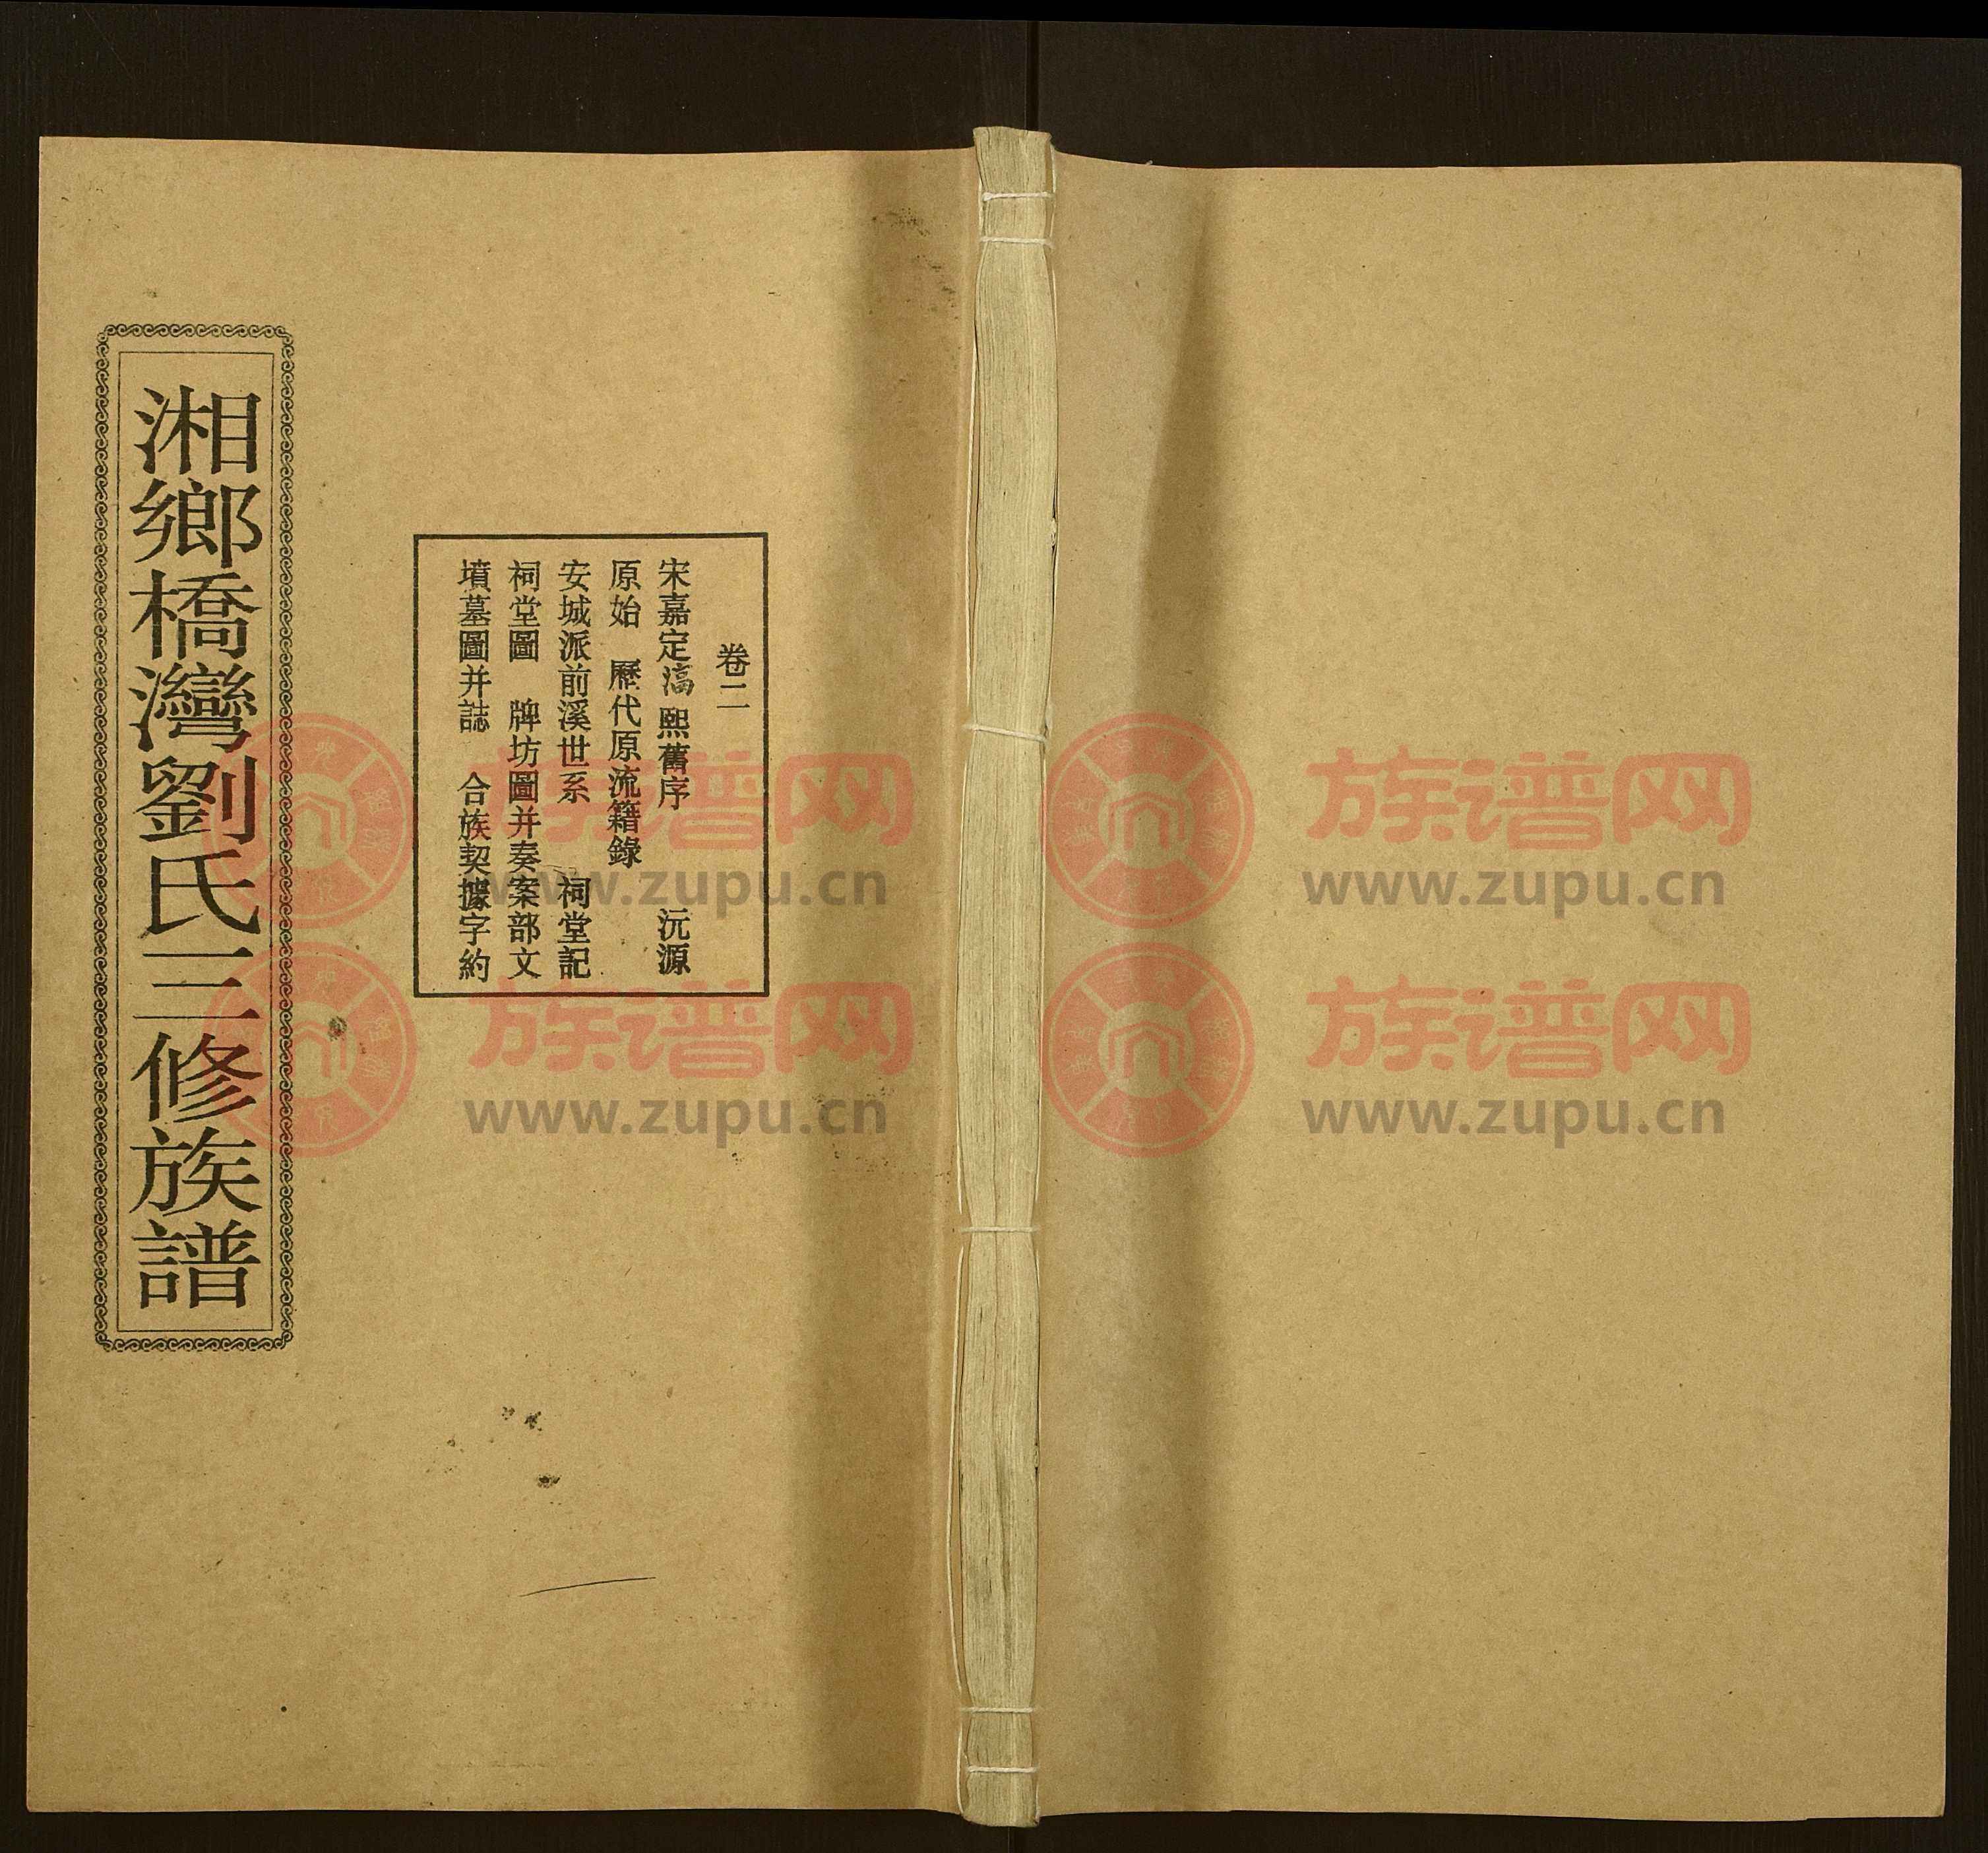 湘鄉橋灣劉氏三修族譜
卷二
宋嘉定淳熙舊序　沅源
原始　歷代原流籍錄
安城派前溪世系　祠堂記
祠堂圖　牌坊圖并奏案部文
墳墓圖并誌　合族契據字約
族谱网
www.zupu.cn
族谱网
www.zupu.cn
族谱网
www.zupu.cn
族谱网
www.zupu.cn